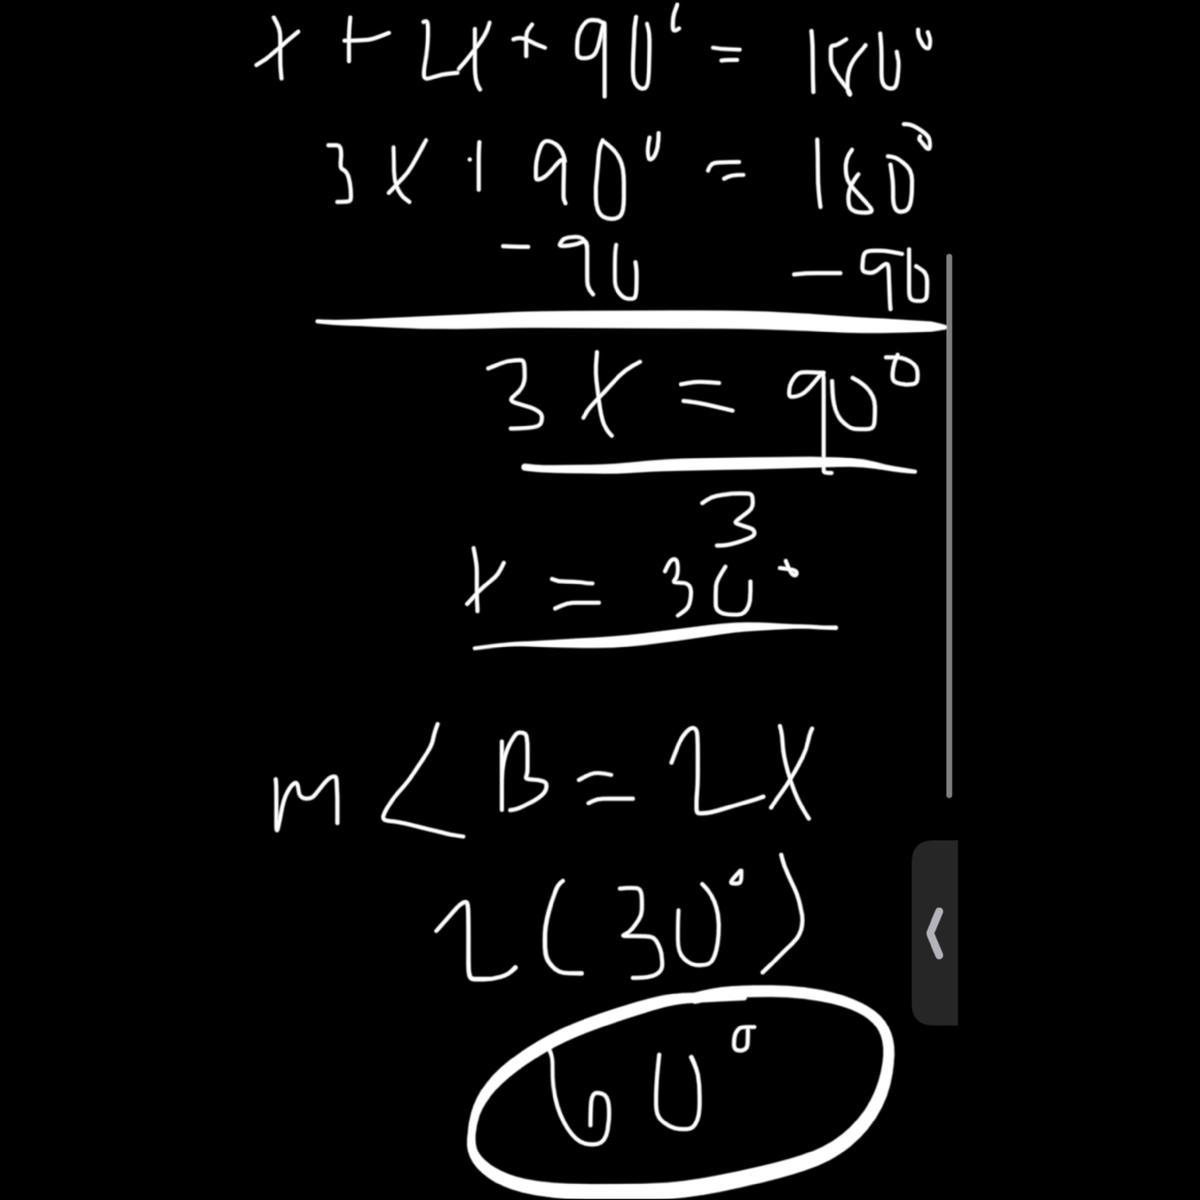 x + 2x + 90° = 180°
3x + 90° = 180°
-90 -90
3x = 90°
3
x = 30°
m∠B = 2x
2(30°)
60°